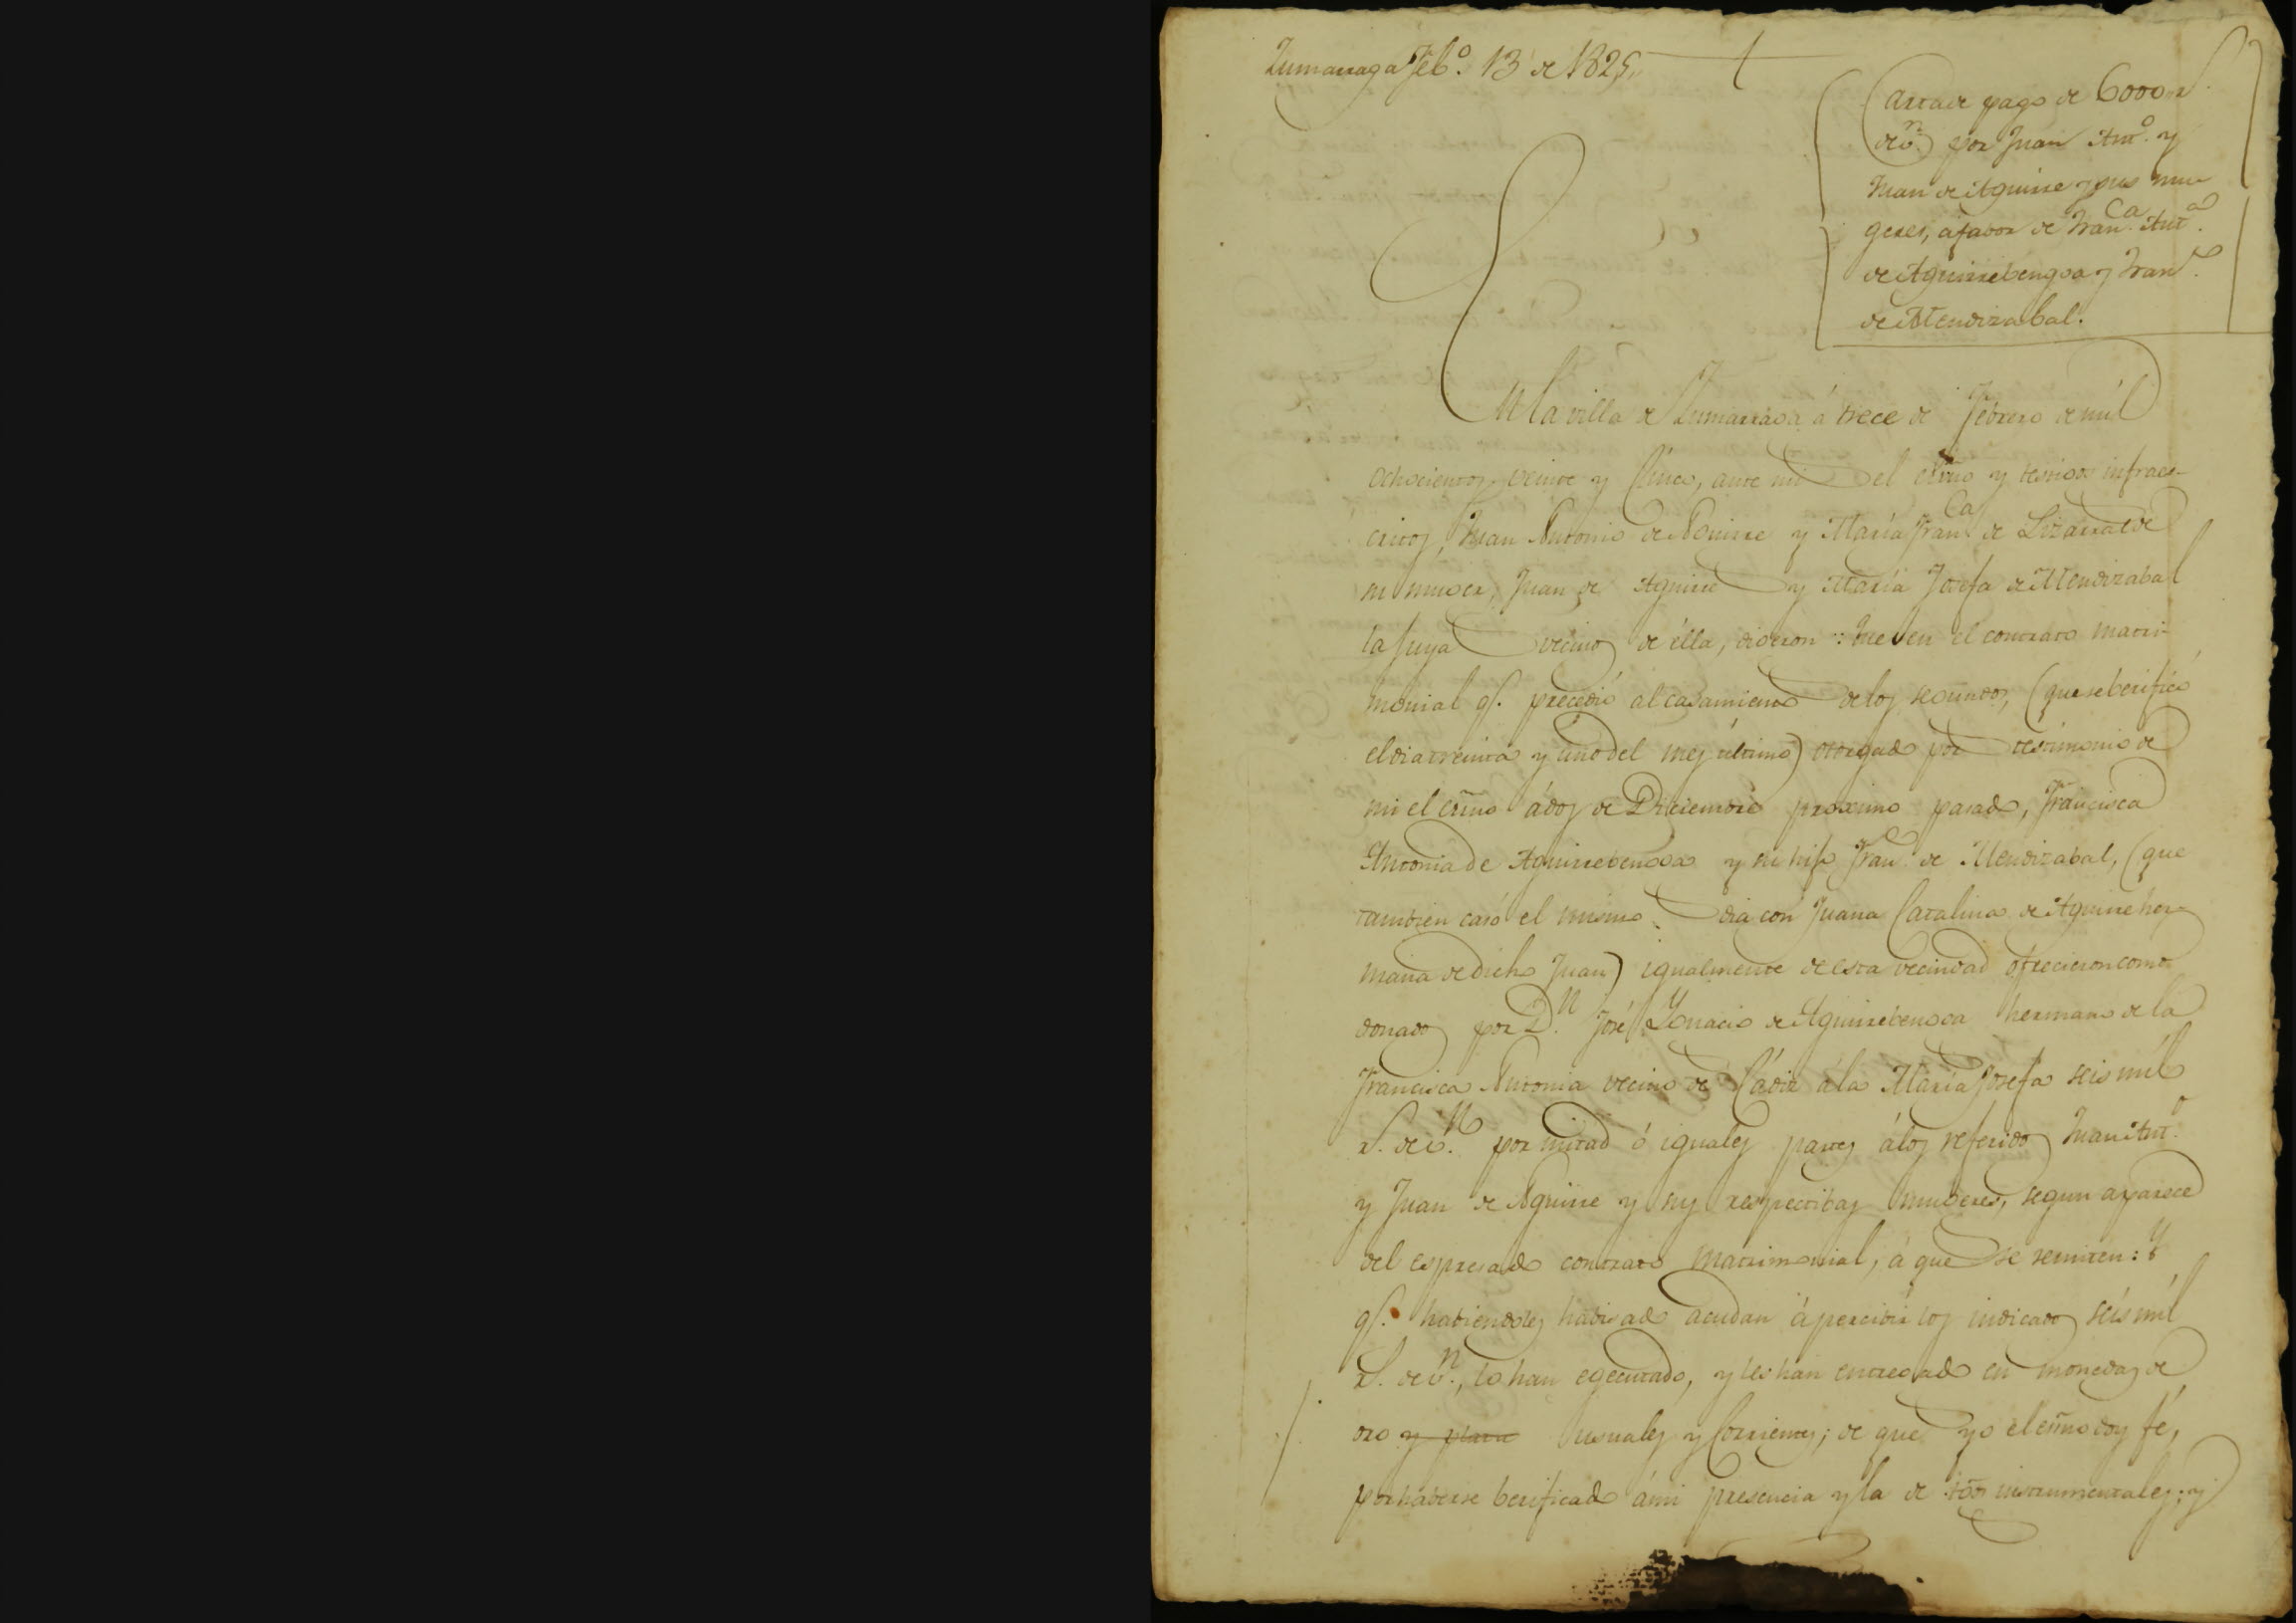 Zumarraga Feb.º 13 de 1825
Carta de pago de 6000 r.s
de v.n por Juan Ant.º y
Juan de Aguirre y sus mu-
geres, á favor de Fran.ca Ant.a
de Aguirrebengoa y Fran.co
de Mendizabal.
En la villa de Zumarraga á trece de Febrero de mil
ochocientos veinte y cinco, ante mi el esno y testigos infraes-
critos, Juan Antonio de Aguirre y María Fran.ca de Lizarralde
su muger, Juan de Aguirre y María Josefa de Mendizabal
la suya vecinos de élla, digeron: Que en el contrato matri-
monial q.e precedió al casamiento de los segundos, (que se berificó
el dia treinta y uno del mes último) otorgado por testimonio de
mi el esno á dos de Diciembre proximo pasado, Francisca
Antonia de Aguirrebengoa y su hijo Fran.co de Mendizabal, (que
tambien casó el mismo dia con Juana Catalina de Aguirre her-
mana de dicho Juan) igualmente de esta vecindad ofrecieron como
donados por D.n José Ygnacio de Aguirrebengoa hermano de la
Francisca Antonia vecino de Cádiz á la María Josefa seis mil
r.s de v.n por mitad ó iguales partes á los referidos Juan Ant.º
y Juan de Aguirre y sus respectibas mugeres, segun aparece
del espresado contrato matrimonial, á que se remiten: Y
q.e habiendoles habisado acudan á percibir los indicados seis mil
r.s de v.n, lo han egecutado, y les han entregado en monedas de
oro y plata usuales y corrientes; de que yo el esno doy fé,
por haberse berificado á mi presencia y la de tgos instrumentales; y